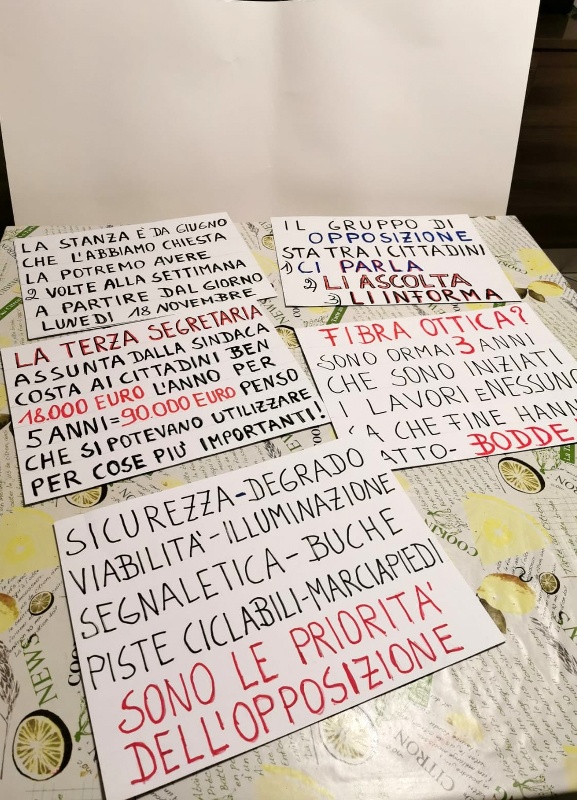 LA STANZA E' DA GIUGNO
CHE L'ABBIAMO CHIESTA
LA POTREMO AVERE
2 VOLTE ALLA SETTIMANA
A PARTIRE DAL GIORNO
LUNEDI 18 NOVEMBRE
IL GRUPPO DI
OPPOSIZIONE
STA TRA I CITTADINI
1) CI PARLA
2) LI ASCOLTA
3) LI INFORMA
LA TERZA SEGRETARIA
ASSUNTA DALLA SINDACA
COSTA AI CITTADINI BEN
18.000 EURO L'ANNO PER
5 ANNI=90.000 EURO PENSO
CHE SI POTEVANO UTILIZZARE
PER COSE PIU' IMPORTANTI!
FIBRA OTTICA?
SONO ORMAI 3 ANNI
CHE SONO INIZIATI
I LAVORI E NESSUNO
A CHE FINE HANN
ATTO- BODDE
SICUREZZA-DEGRADO
VIABILITA'-ILLUMINAZIONE
SEGNALETICA-BUCHE
PISTE CICLABILI-MARCIAPIEDI
SONO LE PRIORITA'
DELL'OPPOSIZIONE
NEWS
CITRON